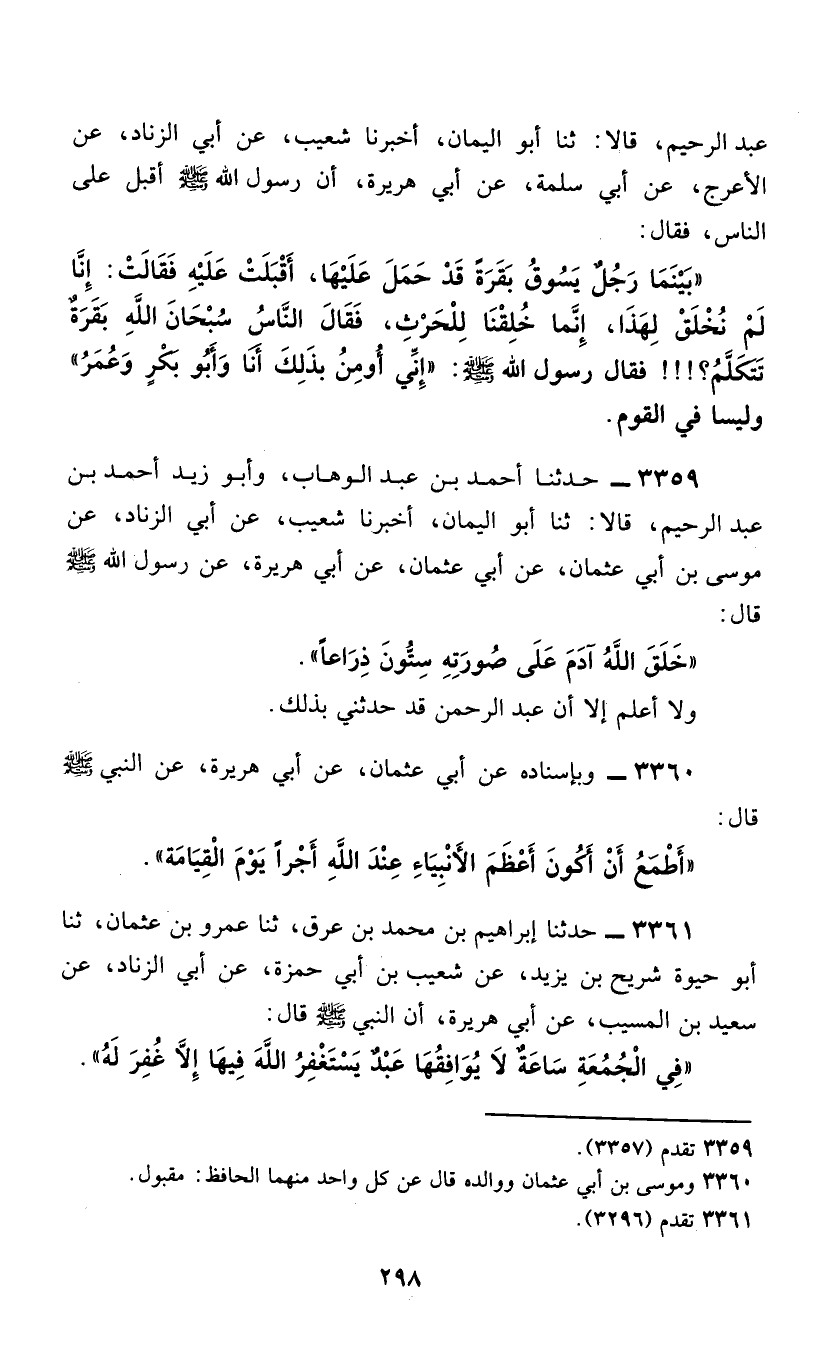 عبد الرحيم، قالا: ثنا أبو اليمان، أخبرنا شعيب، عن أبي الزناد، عن
الأعرج، عن أبي سلمة، عن أبي هريرة، أن رسول الله ﷺ أقبل على
الناس، فقال:
«بَيْنَمَا رَجُلٌ يَسُوقُ بَقَرَةً قَدْ حَمَلَ عَلَيْهَا، أَقْبَلَتْ عَلَيْهِ فَقَالَتْ: إِنَّا
لَمْ نُخْلَقْ لِهَذَا، إِنَّما خُلِقْنَا لِلْحَرْثِ، فَقَالَ النَّاسُ سُبْحَانَ اللَّهِ بَقَرَةٌ
تَتَكَلَّمُ؟!!! فقال رسول الله ﷺ: «إِنِّي أُومِنُ بذَلِكَ أَنَا وَأَبُو بَكْرٍ وَعُمَرُ»
وليسا في القوم.
٣٣٥٩ ــ حدثنا أحمد بن عبد الوهاب، وأبو زيد أحمد بن
عبد الرحيم، قالا: ثنا أبو اليمان، أخبرنا شعيب، عن أبي الزناد، عن
موسى بن أبي عثمان، عن أبي عثمان، عن أبي هريرة، عن رسول الله ﷺ
قال:
«خَلَقَ اللَّهُ آدَمَ عَلَى صُورَتِهِ سِتُّونَ ذِرَاعاً».
ولا أعلم إلا أن عبد الرحمن قد حدثني بذلك.
٣٣٦٠ ــ وبإسناده عن أبي عثمان، عن أبي هريرة، عن النبي ﷺ
قال:
«أَطْمَعُ أَنْ أَكُونَ أَعْظَمَ الأَنْبِيَاءِ عِنْدَ اللَّهِ أَجْراً يَوْمَ الْقِيَامَة».
٣٣٦١ ــ حدثنا إبراهيم بن محمد بن عرق، ثنا عمرو بن عثمان، ثنا
أبو حيوة شريح بن يزيد، عن شعيب بن أبي حمزة، عن أبي الزناد، عن
سعيد بن المسيب، عن أبي هريرة، أن النبي ﷺ قال:
«فِي الْجُمُعَةِ سَاعَةٌ لَا يُوَافِقُهَا عَبْدٌ يَسْتَغْفِرُ اللَّهَ فِيهَا إِلَّا غُفِرَ لَهُ».
٣٣٥٩ تقدم (٣٣٥٧).
٣٣٦٠ وموسى بن أبي عثمان ووالده قال عن كل واحد منهما الحافظ: مقبول.
٣٣٦١ تقدم (٣٢٩٦).
٢٩٨